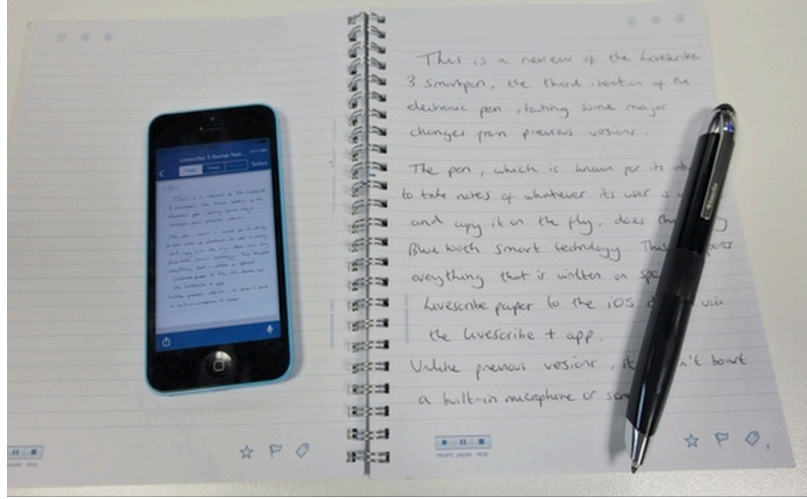 Livescribe 3 Starter Not...
Page Feed Select
pause stop
This is a review of the Livescribe
3 smartpen, the third iteration of the
electronic pen, touting some major
changes from previous versions.
The pen, which is known for its
to take notes of whatever its user is
and copy it on the fly, does
Bluetooth Smart technology. This
everything that is written on
Livescribe paper to the iOS via
the Livescribe + app.
Unlike previous versions, it boast
a built-in microphone or
record pause stop